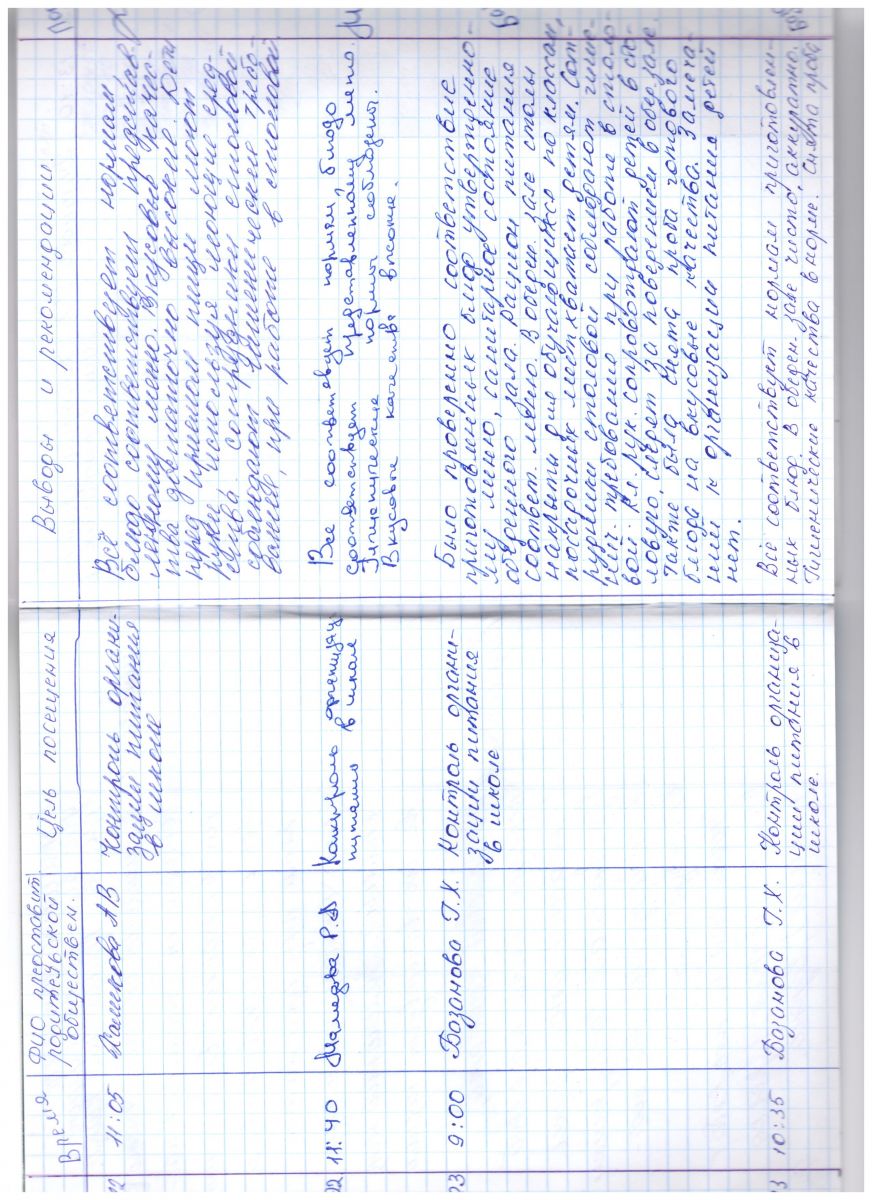 Время
ФИО представит.
родительской
обществен.
Цель посещения
Выводы и рекомендации.
22
11:05
АВ
Контроль органи-
зации питания
в школе
Всё соответствует нормам
блюдо соответствует представ-
ленному меню. Вкусовые качес-
тва достаточно высокие. Дети
перед приемом пищи моют
руки, используя моющие сред-
ства. Сотрудники столовой
соблюдают гигиенические требо-
вание, при работе в столовой
22
11:40
Мамедова Р.А
Контроль организац
питания в школе
Все соответсвует нормам, блюдо
соответствует представленному меню.
Гигиенические нормы соблюдены.
Вкусовые качества высокие.
23
9:00
Бозанова Г.Х.
Контроль органи-
зации питания
в школе
Было проверено соответствие
приготовленных блюд утвержденно-
му меню, санитарное состояние
обеденного зала. Рацион питания
соответ. меню. В обеден. зале столы
накрыты для обучающихся по классам,
посадочных мест хватает детям. Сот-
рудники столовой соблюдают гигие-
нич. требования при работе в столо-
вой. Кл. рук. сопровождают детей в сто-
ловую, следят за поведением в обед. зале.
Также была снята проба готового
блюда на вкусовые качества. Замеча-
ний к организации питания детей
нет.
3
10:35
Бозанова Г.Х.
Контроль организа-
ции питания в
школе.
Всё соответствует нормам приготовлен-
ных блюд. В обеден. зале чисто, аккуратно.
Гигиенические качества в норме. Снята проба